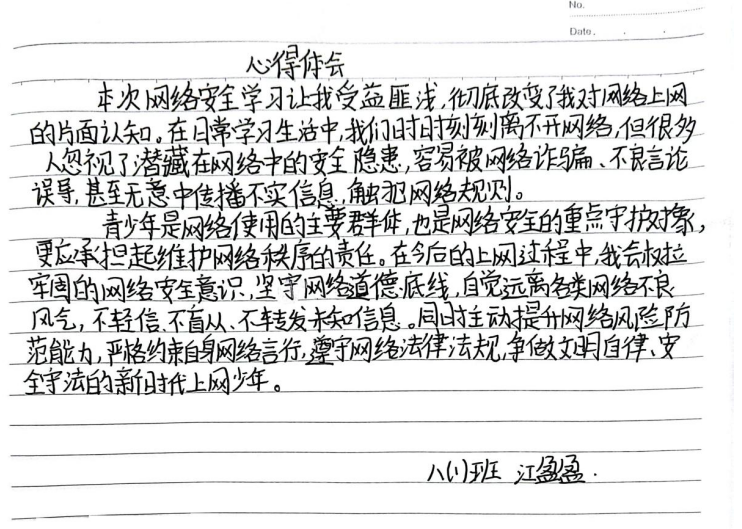 No.
Date.
心得体会
本次网络安全学习让我受益匪浅,彻底改变了我对网络上网
的片面认知。在日常学习生活中,我们时时刻刻离不开网络,但很多
人忽视了潜藏在网络中的安全隐患,容易被网络诈骗、不良言论
误导,甚至无意中传播不实信息,触犯网络规则。
青少年是网络使用的主要群体,也是网络安全的重点守护对象,
更应承担起维护网络秩序的责任。在今后的上网过程中,我会树立
牢固的网络安全意识,坚守网络道德底线,自觉远离各类网络不良
风气,不轻信、不盲从、不转发未知信息。同时主动提升网络风险防
范能力,严格约束自身网络言行,遵守网络法律法规,争做文明自律、安
全守法的新时代上网少年。
八(1)班 江盈盈.